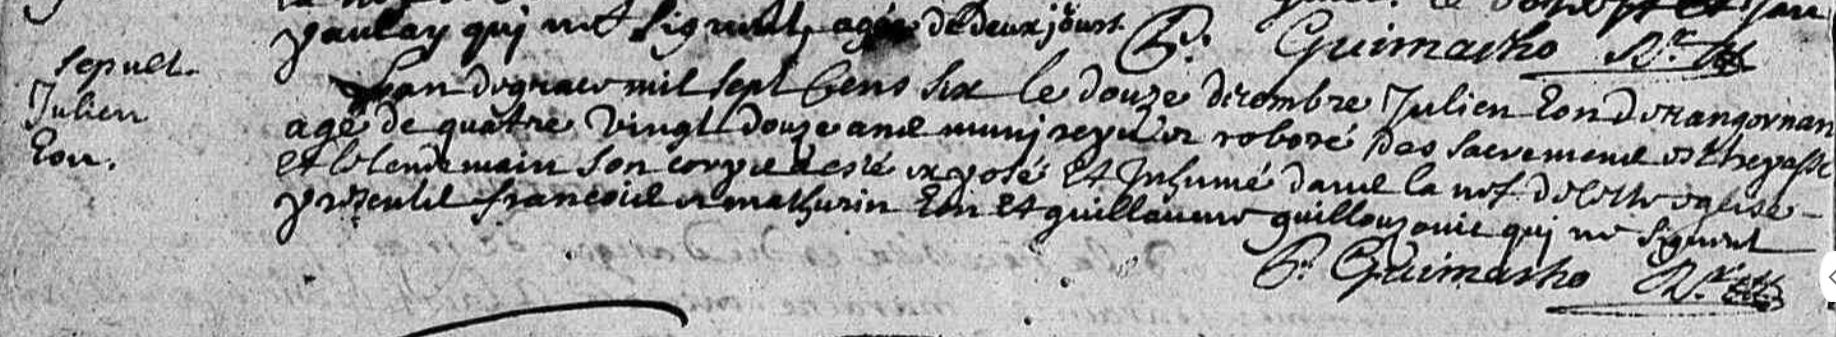 yaulay qui ne signent, agée de deux jours.
P. Guimarho Rr.
sepult.
Julien
Eon.
L'an de grace mil sept cens six le douze decembre Julien Eon de Kangornan
agé de quatre vingt douze ans muni repu et roboré des sacremens est trepassé
et le lendemain son corps a esté exposé et Inhumé dans la nef de cette eglise
presents francois et mathurin Eon et guillaume guillouzouic qui ne signent
P. Guimarho Rr.